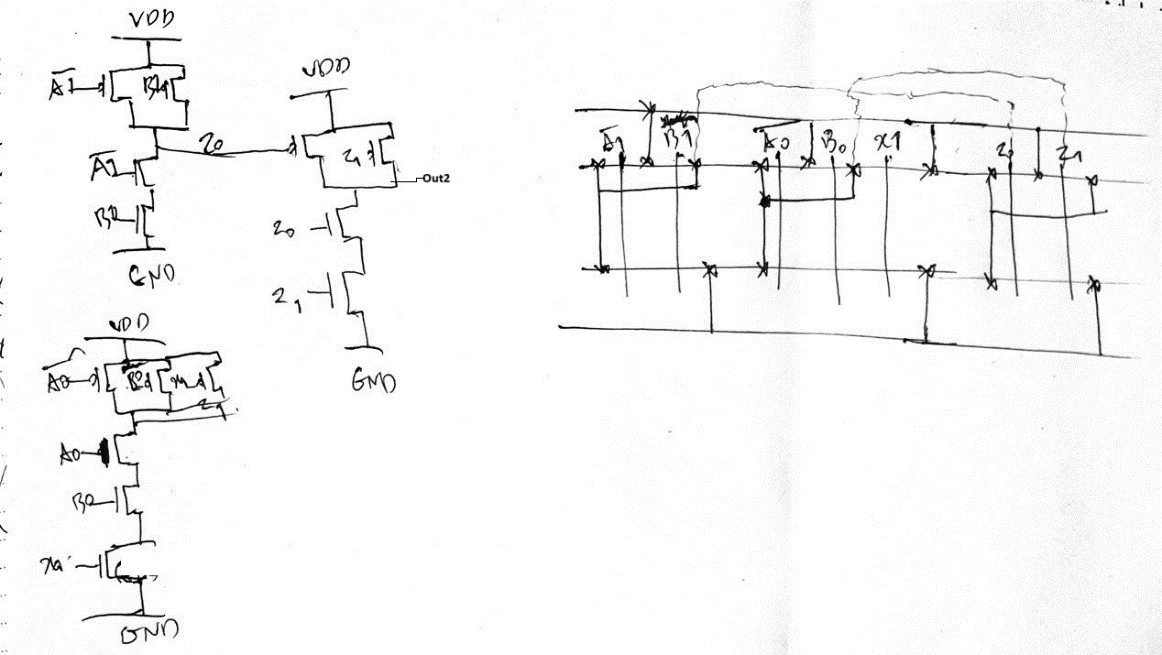 VDD
A̅1̅
B1
Z0
A̅1̅
B1
GND
VDD
Z1
Out2
Z0
Z1
GND
VDD
A̅0̅
B0
X1
Z1
A0
B0
X1
GND
A̅1̅
B1
A̅0̅
B0
X1
Z0
Z1